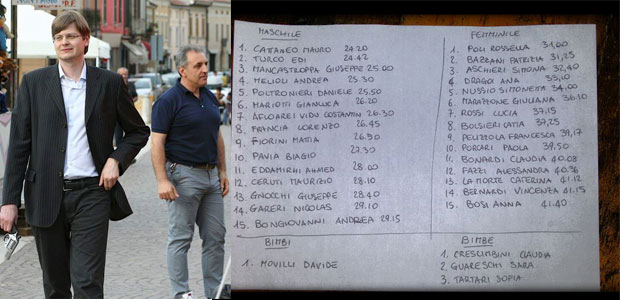 MASCHILE
1. CATTANEO MAURO 24.20
2. TURCO EDI 24.42
3. MANCASTROPPA GIUSEPPE 25.00
4. MELIOLI ANDREA 25.30
5. POLTRONIERI DANIELE 25.50
6. MARIOTTI GIANLUCA 26.20
7. AFLOAREI VIDU COSTANTIN 26.30
8. FRANCIA LORENZO 26.45
9. FIORINI MATIA 26.50
10. PAVIA BIAGIO 27.30
11. EDDAMIRHI AHMED 28.00
12. CERUTI MAURIZIO 28.10
13. GNOCCHI GIUSEPPE 28.40
14. GARERI NICOLAS 29.10
15. BONGIOVANNI ANDREA 29.15
BIMBI
1. MOVILLI DAVIDE
FEMMINILE
1. POLI ROSSELLA 31,00
2. BAZZANI PATRIZIA 31,25
3. ASCHIERI SIMONA 32,40
4. DRAGOI ANA 33,10
5. NUSSIO SIMONETTA 34,00
6. MARAZZONE GIULIANA 36.10
7. ROSSI LUCIA 37.15
8. BOLSIERI CATIA 37,25
9. PELIZZOLA FRANCESCA 39,17
10. PORCARI PAOLA 39.50
11. BONARDI CLAUDIA 40.08
12. FAZZI ALESSANDRA 40.56
13. LA MORTE CATERINA 41.12
14. BERNARDI VINCENZA 41.15
15. BOSI ANNA 41.40
BIMBE
1. CRESCIMBINI CLAUDIA
2. GUARESCHI SARA
3. TARTARI SOFIA